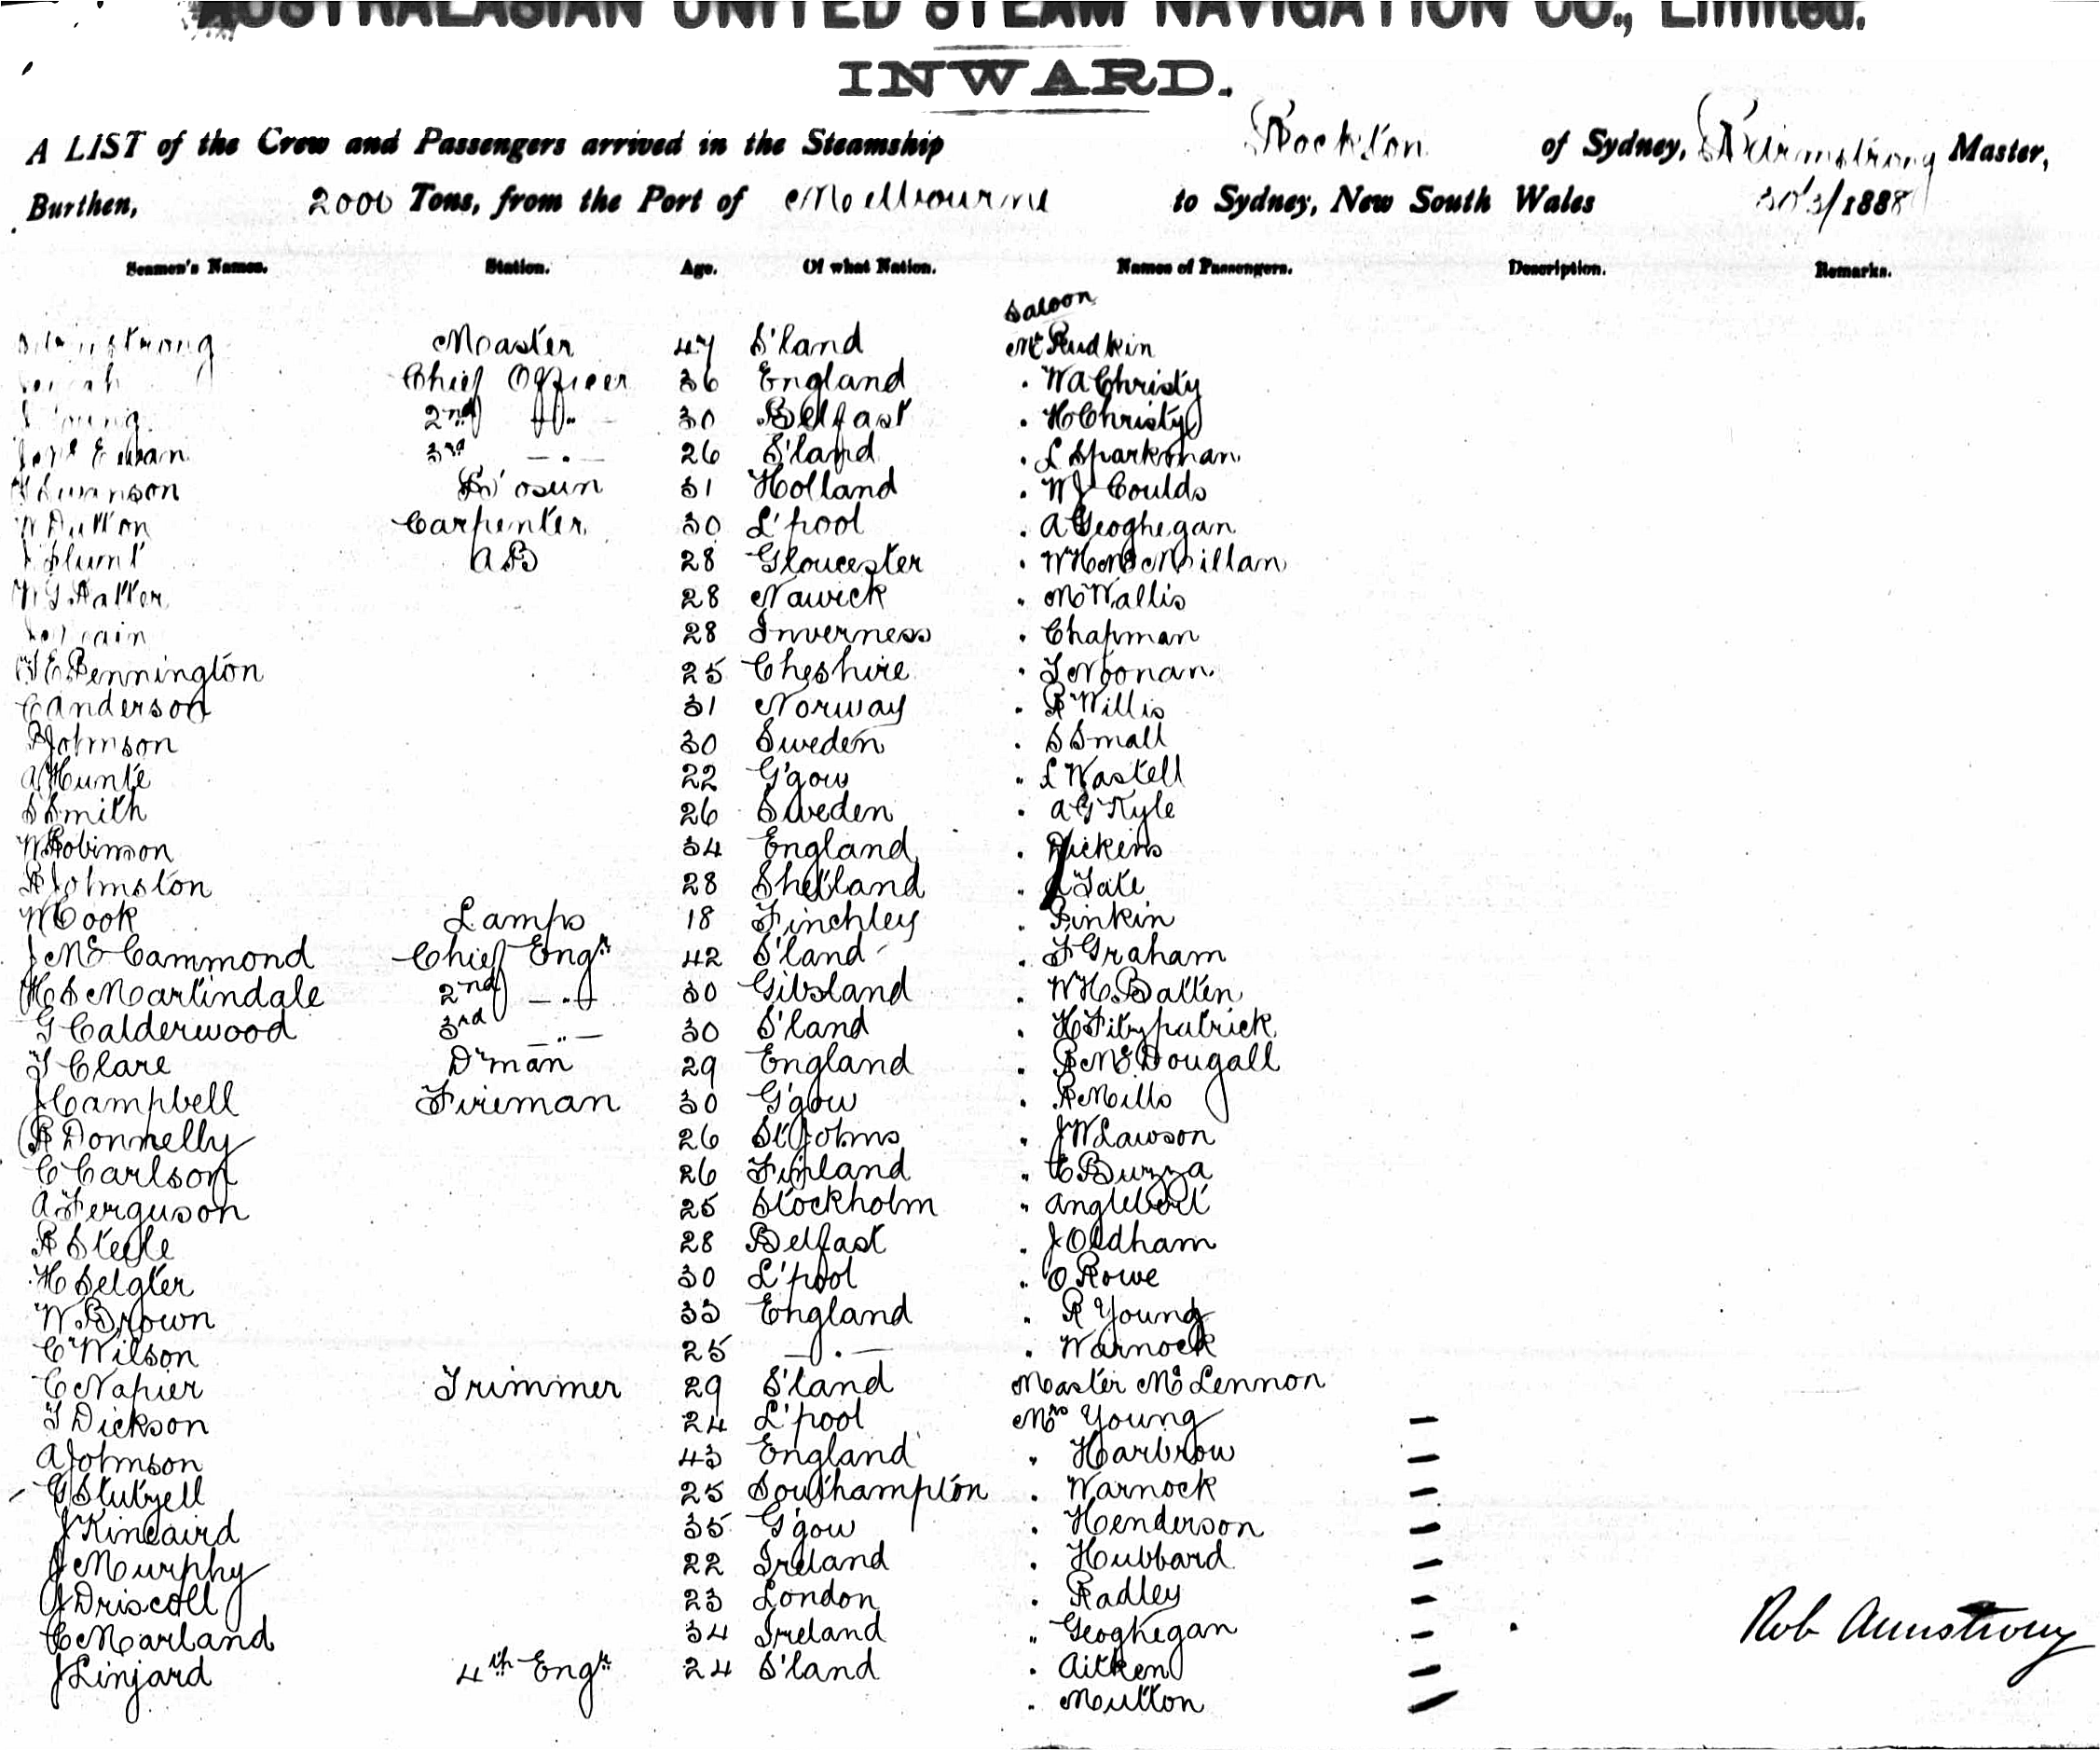 AUSTRALASIAN UNITED STEAM NAVIGATION CO., Limited.
INWARD.
A LIST of the Crew and Passengers arrived in the Steamship Rockton of Sydney, R Armstrong Master,
Burthen, 2000 Tons, from the Port of Melbourne to Sydney, New South Wales /1888
Seamen's Names. Station. Age. Of what Nation. Names of Passengers. Description. Remarks.
Saloon
Armstrong Master 47 S'land Mr Rudkin
Chief Officer 36 England . W A Christy
Young 2nd " 30 Belfast . H Christy
3rd — . — 26 S'land . L Sparkman
Swanson Bo'osun 31 Holland . W J Coulds
W Dutton Carpenter 30 L'pool . A Geoghegan
Blunt A B 28 Gloucester . W H McMillan
W G Halter 28 Nawick . M Wallis
28 Inverness . Chapman
T E Pennington 25 Cheshire . T Noonan
C Anderson 31 Norway . R Willis
P Johnson 30 Sweden . S Small
A Hunte 22 G'gow " L Wastell
S Smith 26 Sweden . A G Kyle
W Robinson 34 England . Dickens
R Johnston 28 Shetland " A Tate
W Cook Lamps 18 Finchley . Pinkin
J McCammond Chief Engr 42 S'land . F Graham
H S Martindale 2nd — " — 30 Gibsland . W H Batten
G Calderwood 3rd — " — 30 S'land . H Fitzpatrick
T Clare D'man 29 England . R McDougall
J Campbell Fireman 30 G'gow . R Mills
R Donnelly 26 St Johns " J W Lawson
C Carlson 26 Finland " C Buzza
A Ferguson 25 Stockholm " Anglebert
R Steele 28 Belfast . J Oldham
H Selgter 30 L'pool . O Rowe
W Brown 33 England . R Young
C Wilson 25 — . — . Warnock
C Napier Trimmer 29 S'land Master McLennon
T Dickson 24 L'pool Mrs Young —
A Johnson 43 England " Harbrow —
G Stutzell 25 Southampton . Warnock —
J Kincaird 35 G'gow . Henderson —
J Murphy 22 Ireland . Hubbard —
J Driscoll 23 London . Radley —
C Marland 34 Ireland " Geoghegan —
J Linjard 4th Engr 24 S'land . Aitken —
" Mutton —
Rob Armstrong